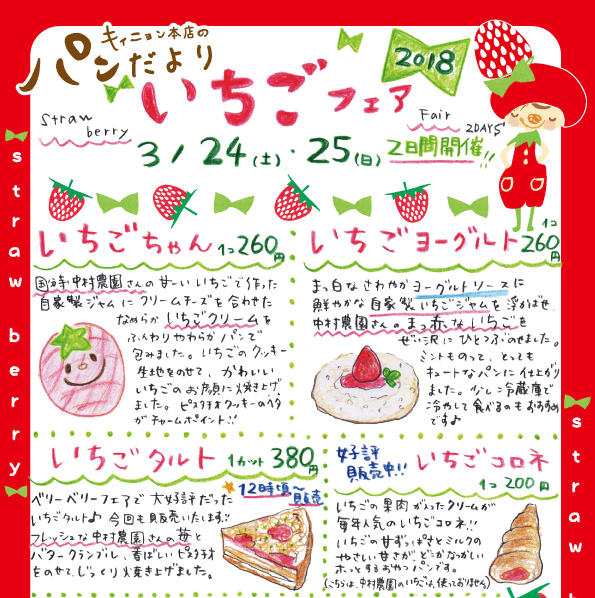 キィニョン本店の
パンだより
2018
いちごフェア
straw
berry
Fair
2DAYS
3/24(土)・25(日) 2日間開催!!
straw berry
いちごちゃん 1コ260円
国分寺中村農園さんの甘ーいいちごで作った
自家製ジャムにクリームチーズを合わせた
なめらかいちごクリームを
ふんわりやわらかパンで
包みました。いちごのクッキー
生地をのせて、かわいい
いちごのお顔に焼き上げ
ました。ピスタチオクッキーのヘタ
がチャームポイント!!
いちごヨーグルト 1コ260円
まっ白なさわやかヨーグルトソースに
鮮やかな自家製いちごジャムを浮かばせ、
中村農園さんのまっ赤ないちごを
ぜいたくにひとつぶのせました。
ミントものって、とっても
キュートなパンに仕上がり
ました。少し冷蔵庫で
冷やして食べるのもおすすめ
です♪
いちごタルト 1カット380円
★12時頃〜販売
ベリーベリーフェアで大好評だった
いちごタルト♪今回も販売いたします!!
フレッシュな中村農園さんの苺と
バタークランブル、香ばしいピスタチオ
をのせて、じっくり焼き上げました。
好評販売中!! いちごコロネ
1コ200円
いちごの果肉が入ったクリームが
毎年人気のいちごコロネ!!
いちごの甘ずっぱさとミルクの
やさしい甘さが、どこかなつかしい
ホッとするおやつパンです。
(こちらは、中村農園のいちごは、使っておりません)
straw